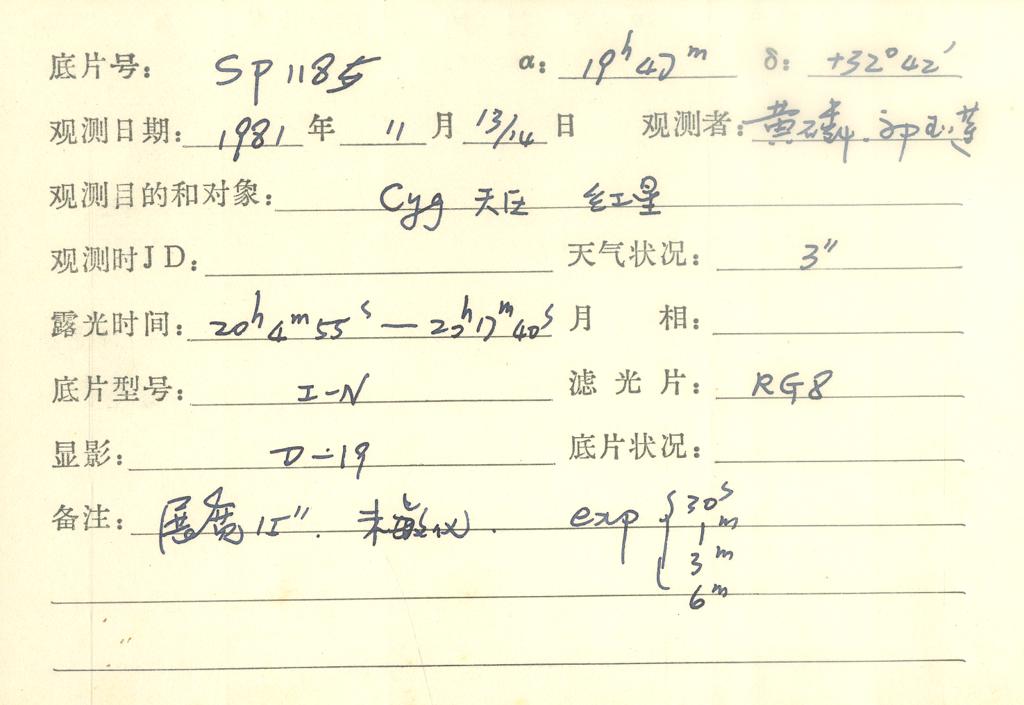 底片号: SP1185 α: 19ʰ47ᵐ δ: +32°42′
观测日期: 1981 年 11 月 13/14 日 观测者: 黄磷.
观测目的和对象: Cyg 天区 红星
观测时JD: 天气状况: 3″
露光时间: 20ʰ4ᵐ55ˢ — 22ʰ17ᵐ40ˢ 月 相:
底片型号: I-N 滤光片: RG8
显影: D-19 底片状况:
备注: 展宽15″. 未敏化. exp { 30ˢ
1ᵐ
3ᵐ
6ᵐ